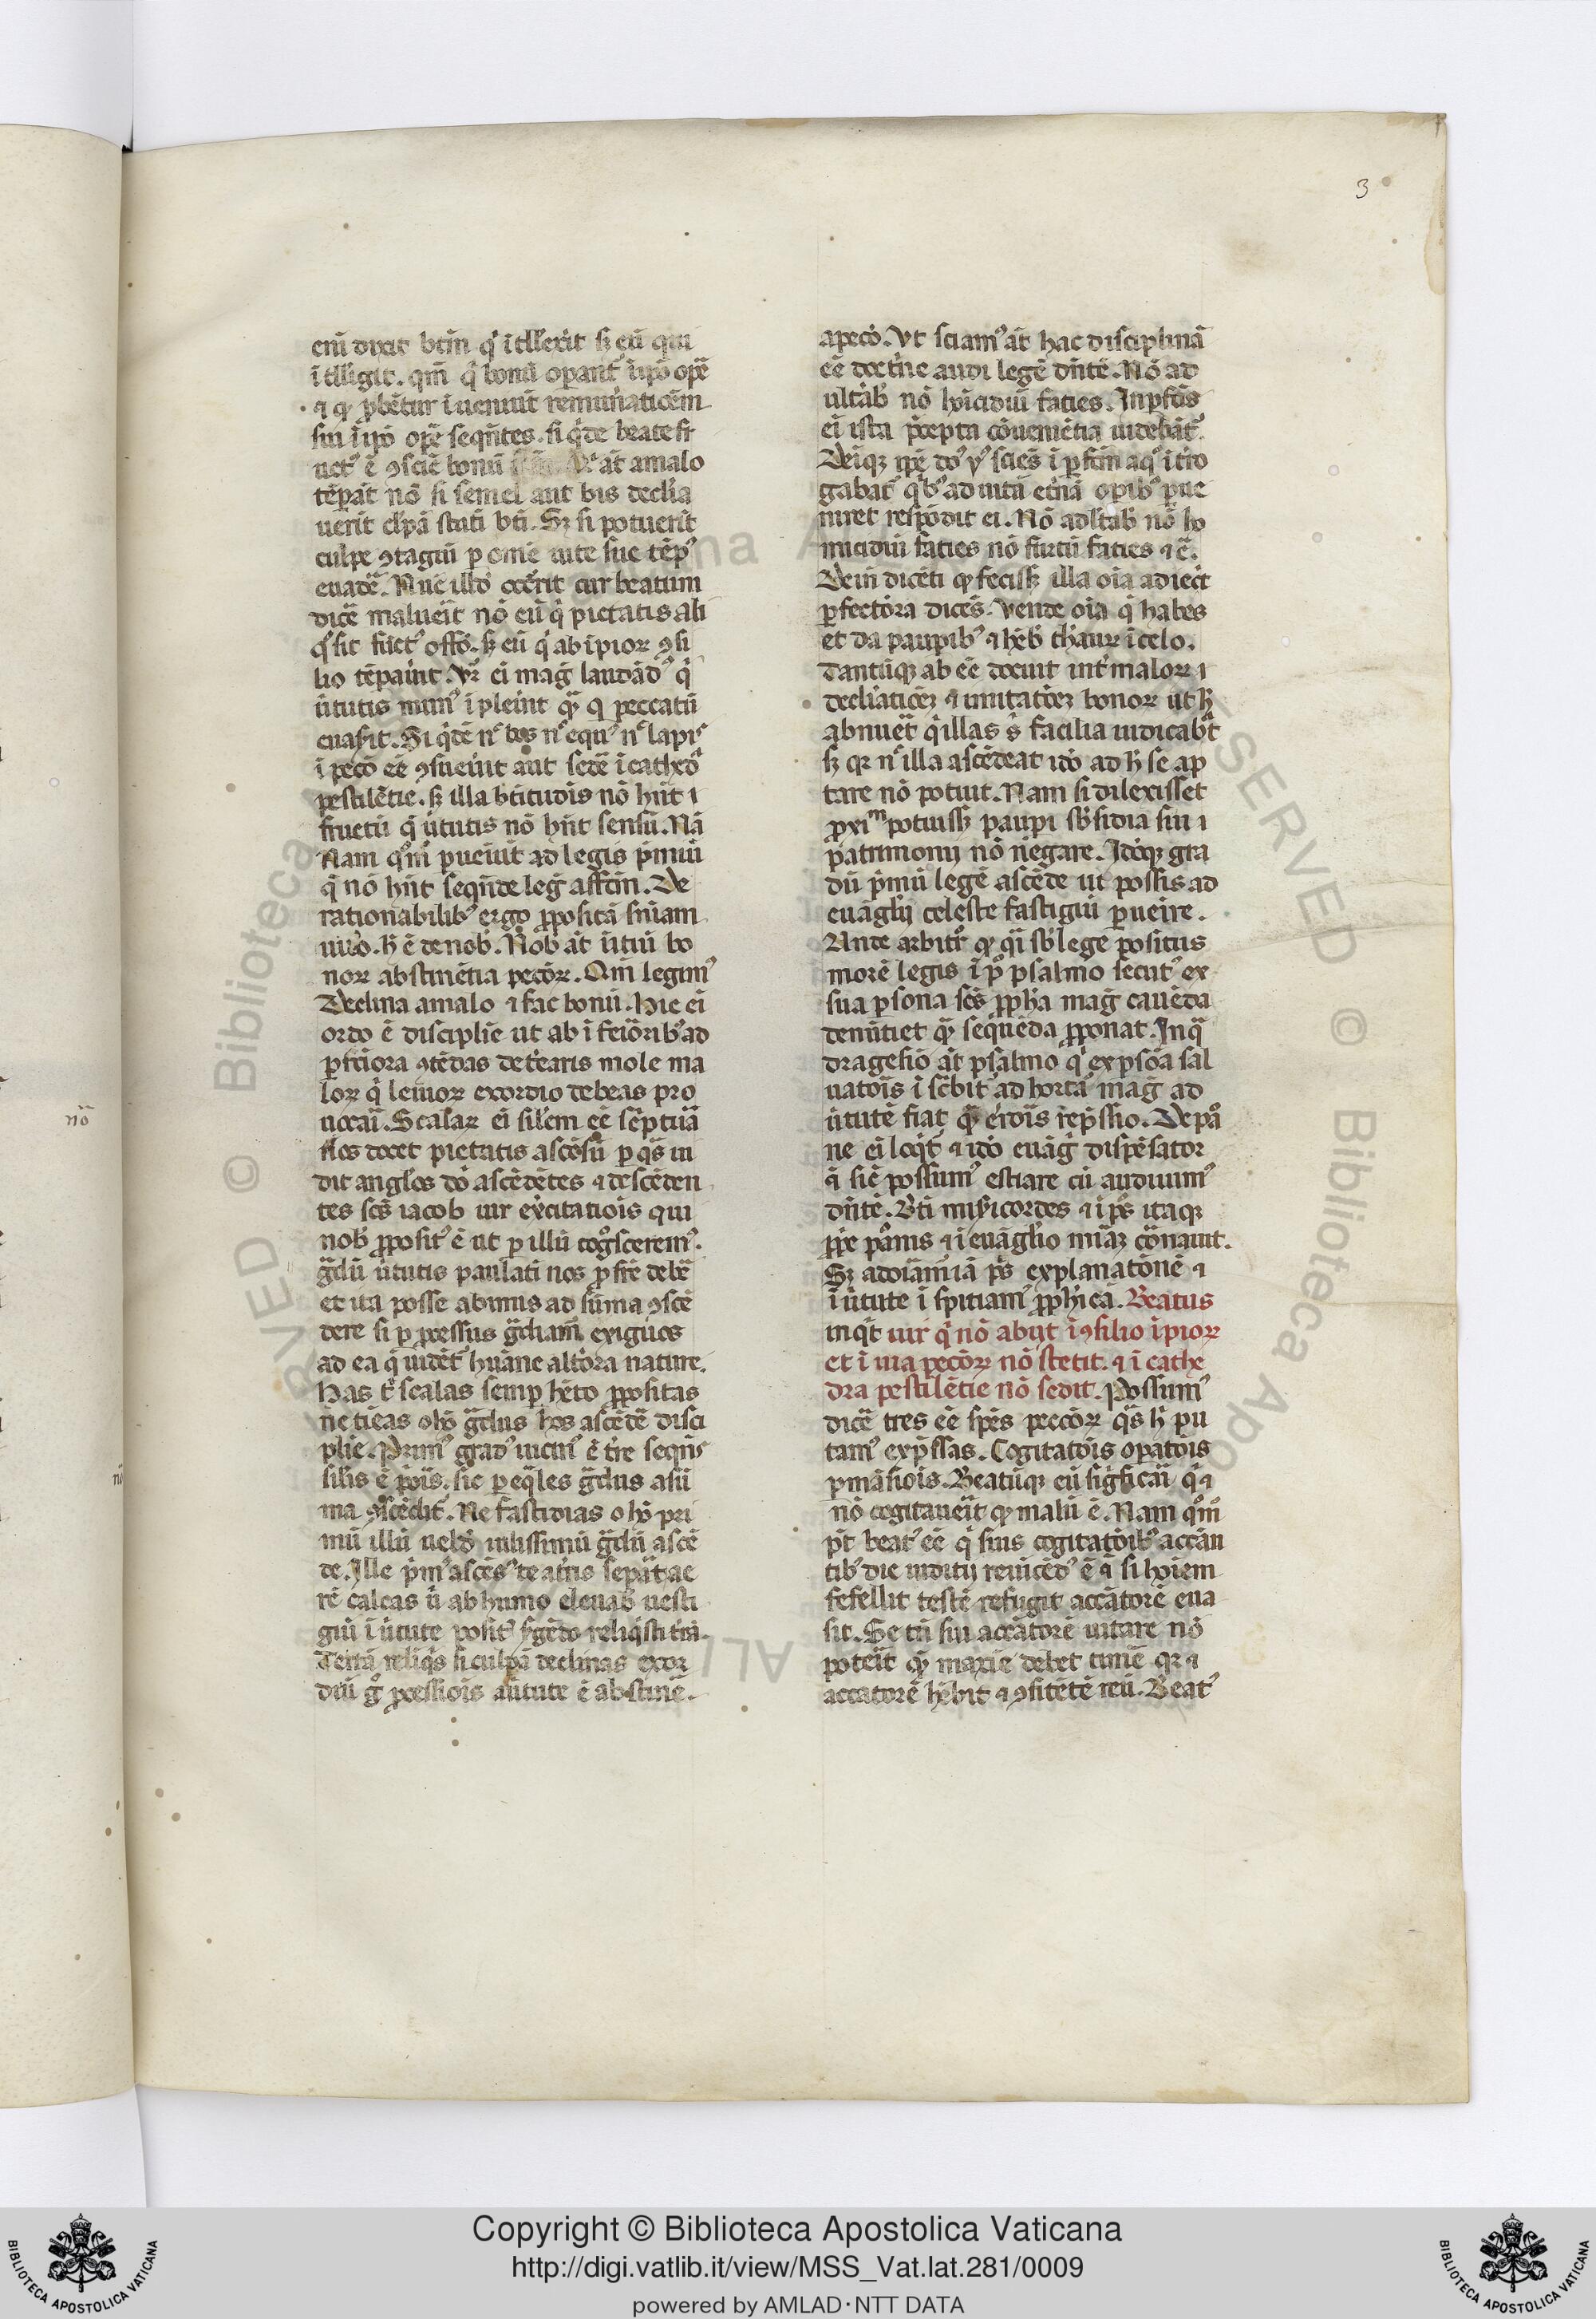 3
eni dixit btm̄ q̇ ītll'exit ꝫ eū qui
ītlligit. qm̄ q̇ bonū opant' īipō opē
⁊ ꝙ ꝓbētur īueniūt remun'atiōem
sui īipō opē seqn̄tes. si q̇dē beate fr
uct' ē ꝯsciē bonū at amalo
tēpāt nō si semel aut bis decli'a
uerit cl'pā statī bti. Sꝫ si potuerit
culpe ꝯtagiū p omē uite sue tēp'
euadē. Nūc illd' occ'rit cur beatum
dicē maluerit nō eū q̇ pietatis ali
q̇ sit fūct' offō. ꝫ eū q̇ ab īpioꝝ ꝯsi
lio tēpau'it. Vr̄ ei maḡ laudād' q̇
ūtutis mun' īpleu'it qͣ q peccatū
euasit. Si q̇dē n' bos n' equ' n' lapi'
ī peccō eē ꝯsueuit aut sedē ī cathedͣ
pestilētie. ꝫ illa btitudīs nō hn̄t ⁊
fructū q̇ ūtutis nō hn̄t sensū. Nā
Nam qͦm̄ pueiūt ad legis p̄miū
q̇ nō hn̄t seqn̄de leḡ affcm̄. De
rationabilib' ergo ꝓpositā sn̄iam
uiro. h̄ ē de nob̄. Nob̄ at ūtiū bo
noꝝ abstinētia peccōꝝ. Qm̄ legim'
Declina amalo ⁊ fac bonū. Hic ei
ordo ē disciplie ut ab īferiorib' ad
pfciora ꝯtēdas deterioris mole ma
loꝝ q̇ leuioꝝ exordio debeas pro
uocaī. Scalaꝝ ei silem eē sc̄ptuā
Nos docet pietatis ascēsū p qͣs ui
dit angl'os dō ascēdētes ⁊ descēden
tes sc̄s iacob uir exercitatiōis qui
nob̄ ꝓposit' ē ut p illū cog'scerem'.
gͣdū ūtutis paulatī nos ꝓfrē debē
et ita posse ab imis ad sūma ꝯscē
dere si p ꝓcessus gͣduāꝫ exiguos
ad ea q̇ uidēt' hūane altiora nature.
Has t' scalas semp hēto ꝓpositas
ne tieas o hō gͣdus hos ascēdē disci
plie. Prim' grad' uicin' ē t're seqn̄s
silis ē p̄oris. sic p eqͣles gͣdus asū
ma ꝯscēdit'. Ne fastidias o hō pri
mū illū uel'd' uilissimū gͣdū ascē
de. Ille p̄m' ascēs' te a t'ris sepāt ae
rē calcas ū ab humo eleuab̄ uesti
giū ī ūtute posit' s'gēdo reliq̇sti t'rā.
Terrā reliq̇s si culpā declinas exor
diū gͦ ꝓcessiōis aūtute ē abstinē.
apeccō. Vt sciam' at hac disciplinā
eē doct'ne audi legē dn̄tē. Nō ad
ultāb̄ nō homicidiū facies. In pfc̄is
ei ista p̄cepta cōuenientia uidebāt'.
Deīqꝫ ipē do' y' sciēs ī pfcm̄ a q' ītro
gabat' qͥb' ad uitā et'nā opib' pue
niret respōdit ei. Nō adltab̄ nō ho
micidiū facies nō furtū facies ⁊c̄.
Dein dicēti ꝙ fecissꝫ illa oīa adiecit
pfectiora dicēs. Vende oīa q̇ habes
et da paupib' ⁊ hēb' th'auꝝ ī celo.
Tantūqꝫ ab eē docuit int' maloꝝ ⁊
decliatiōeꝫ ⁊ imitatiōeꝫ bonoꝝ ut h̄
abnuēt q̇ illas ś facilia iudicab't
ꝫ qꝛ n' illa ascēdeat idō ad h̄ se ap
tare nō potuit. Nam si dilexisset
ꝓxim potuissꝫ paupi sb'sidia sui ⁊
patrimonij nō negare. Idōqꝫ gra
dū p̄mū legē ascēde ut possis ad
euāglij celeste fastigiū pueire.
Ante arbitr̄ ꝙ qͣi sb' lege positus
morē legis ī pͦ psalmo secut' ex
sua psona sc̄s ꝓph'a maḡ cauēda
denūtiet qͣ sequēda ꝓponat. In qͣ
dragesīo at psalmo q̇ ex psōa sal
uatoris īscbit' ad hortā' maḡ ad
ūtutē fiat qͣ erroris rep̄ssio. De pͣ
ne ei loqt' ⁊ idō euāḡ dispēsator
q̇ sic possum' estiare cū audiuim'
dn̄tē. Bti misicordes ⁊ ī ps̄ itaqꝫ
ꝓpe p̄mis ⁊ ī euāglio miāꝫ cōnauit.
Sꝫ adoīam iā ps̄ explanatōnē ⁊
ī ūtute ī spitiam ꝓph'icā. Beatus
inqt uir q̇ nō abijt ī ꝯsilio īpioꝝ
et ī uia peccōꝝ nō stetit. ⁊ ī cathe
dra pestilētie nō sedit. Possum'
dicē tres eē spēs peccōꝝ qͣs h̄ pu
tam' exp̄ssas. Cogitatōis opatōis
pmāsiōis. Beatūqꝫ eū sig'ficaī q̇ ⁊
nō cogitaueīt ꝙ malū ē. Nam qͦm̄
pt̄ beat' eē q̇ suis cogitatōib' accūsan
tib' die iuditij reuicēd' ē ⁊ si hoīem
fefellit testē refugit accātorē eua
sit. Se tn̄ sui accātorē uitare nō
poteīt qͣ maxīe debet timē qꝛ ⁊
accatorē hēbit ⁊ ꝯfitētē reū. Beat'
nō
nō
Copyright © Biblioteca Apostolica Vaticana
http://digi.vatlib.it/view/MSS_Vat.lat.281/0009
powered by AMLAD·NTT DATA
BIBLIOTECA APOSTOLICA VATICANA
BIBLIOTECA APOSTOLICA VATICANA